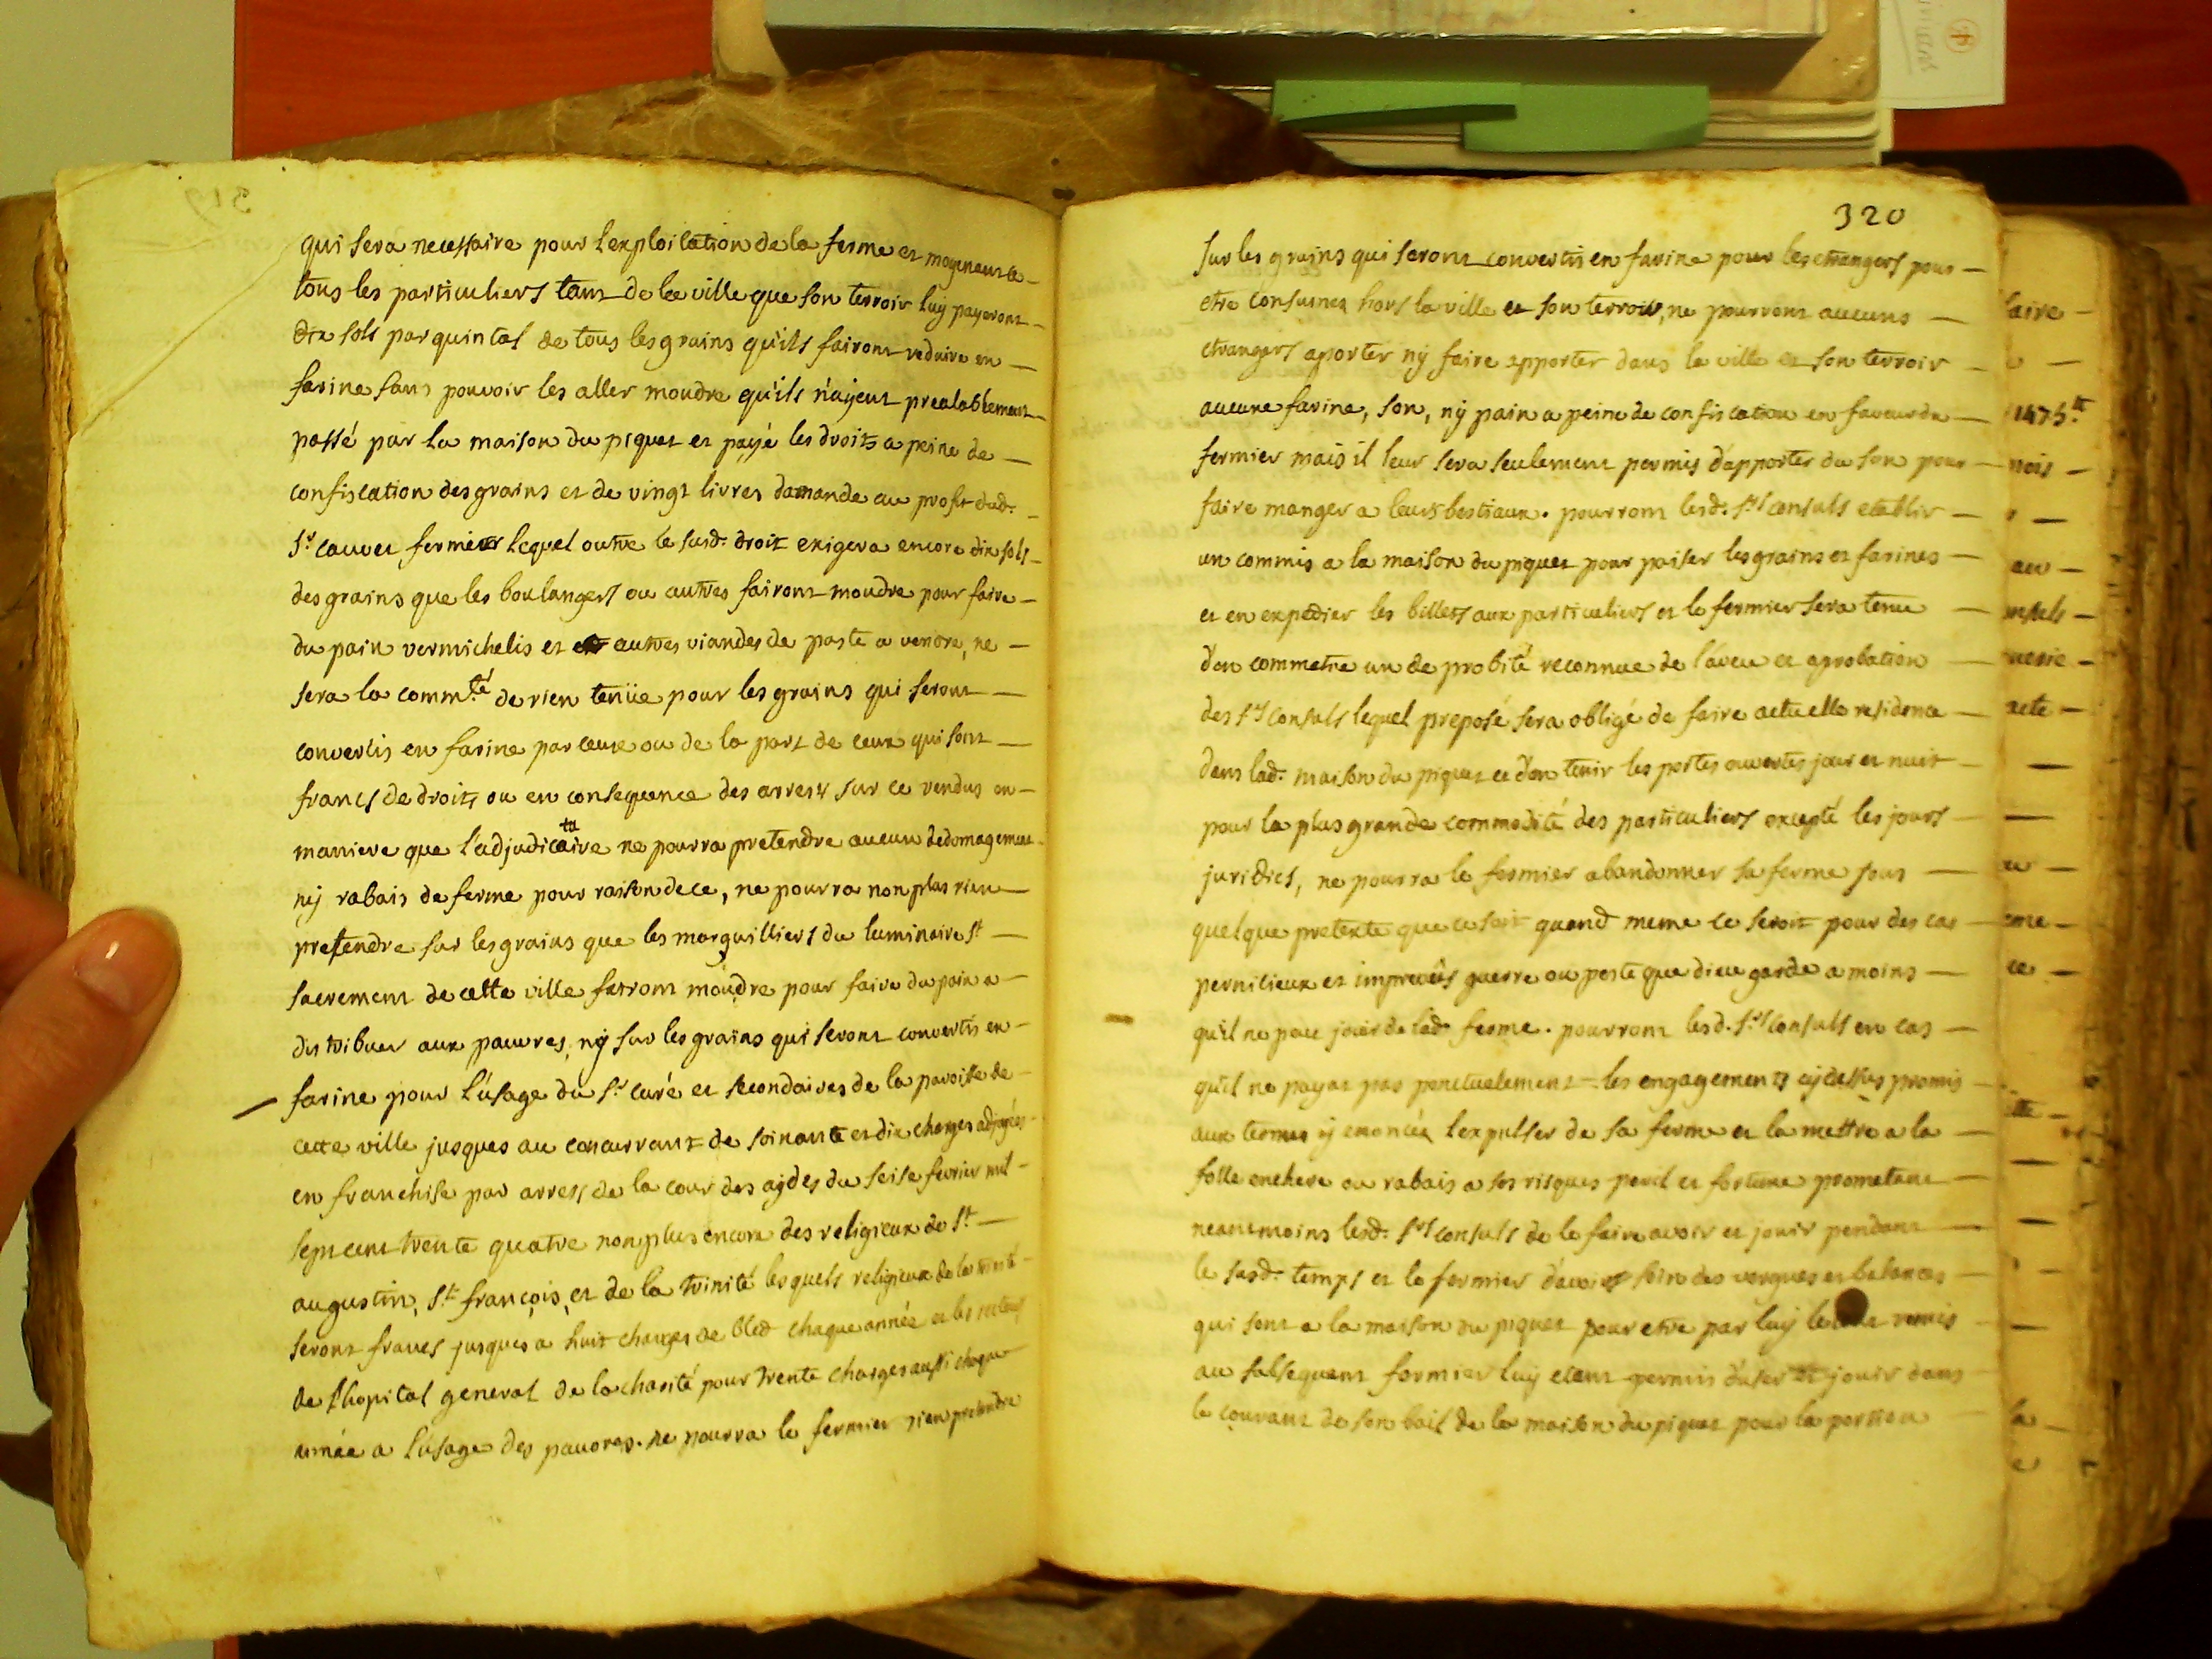 qui sera necessaire pour lexploitation de la ferme et moyenant ce
tous les particuliers tant de la ville que son terroir luy payeront
dix sols par quintal de tous les grains qu'ils fairont reduire en
farine sans pouvoir les aller moudre qu'ils n'ayent prealablement
passé par la maison du piquet et payé les droits a peine de
confiscation des grains et de vingt livres damande au profit dud.
Sr. cauvet fermier lequel outre le susd. droit exigera encore dix sols
des grains que les boulangers ou autres fairont moudre pour faire
du pain vermichelis et autres viandes de paste a vendre, ne
sera la comm.té de rien tenüe pour les grains qui seront
convertis en farine par ceux ou de la part de ceux qui sont
francs de droits ou en consequence des arrests sur ce rendus en
maniere que l'adjudicataire ne pourra pretendre aucun dedomagement
nij rabais de ferme pour raison de ce, ne pourra non plus rien
pretendre sur les grains que les marguilliers du luminaire St
sacrement de cette ville fairont moudre pour faire du pain a
distribuer aux pauvres, nÿ sur les grains qui seront convertis en
farine pour l'úsage du Sr. curé et secondaires de la paroisse de
cette ville jusques au concurrant de soixante et dix charges adjugées
en franchise par arrest de la cour des aÿdes du seise fevrier mil
sept cent trente quatre non plus encore des religieux de St
augustin, St. françois, et de la trinité lesquels religieux de la trinité
seront francs jusques a huit charges de bled chaque année et les recteurs
de l'hopital general de la charité pour trente charges aussi chaque
année a l'usage des pauvres. ne pourra le fermier rien pretendre
320
sur les grains qui seront convertis en farine pour les etrangers pour
etre consumés hors la ville et son terroir, ne pourront aucuns
etrangers aporter nÿ faire apporter dans la ville et son terroir
aucune farine, son, nÿ pain a peine de confiscation en faveur du
fermier mais il leur sera seulement permis d'apporter du son pour
faire manger a leurs bestiaux. pourront lesd. Srs consuls etablir
un commis a la maison du piquet pour poiser les grains et farines
et en expedier les billets aux particuliers et le fermier sera tenu
d'en commetre un de probité reconnue de l'áveu et aprobation
des Srs consuls lequel preposé sera obligé de faire actuelle residence
dans lad. maison du piquet et d'en tenir les portes ouvertes jour et nuit
pour la plus grande commodité des particuliers excepté les jours
juridics, ne pourra le fermier abandonner sa ferme sous
quelque pretexte que ce soit quand meme ce seroit pour des cas
pernitieux et imprevûs guerre ou peste que dieu garde a moins
qu'il ne peu jouir de lad. ferme. pourront lesd. Srs consuls en cas
qu'il ne payat pas ponctuelement les engagements cÿ dessus promis
aux termes ÿ enoncés lexpulser de sa ferme et la mettre a la
folle enchere ou rabais a ses risques peril et fortune prometant
neantmoins lesd. Srs consuls de le faire avoir et jouir pendant
le susd. temps et le fermier d'avoir soin des vergues et balances
qui sont a la maison du piquet pour etre par luÿ le tout remis
au subsequent fermier luÿ etant permis d'user et jouir dans
le courant de son bail de la maison du piquet pour la portion
aire
1475.tt
nois
au
onsuls
acte